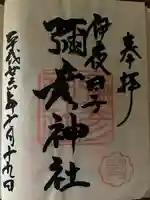 奉拝
伊夜日子
彌彦神社
平成廿六年十月十九日